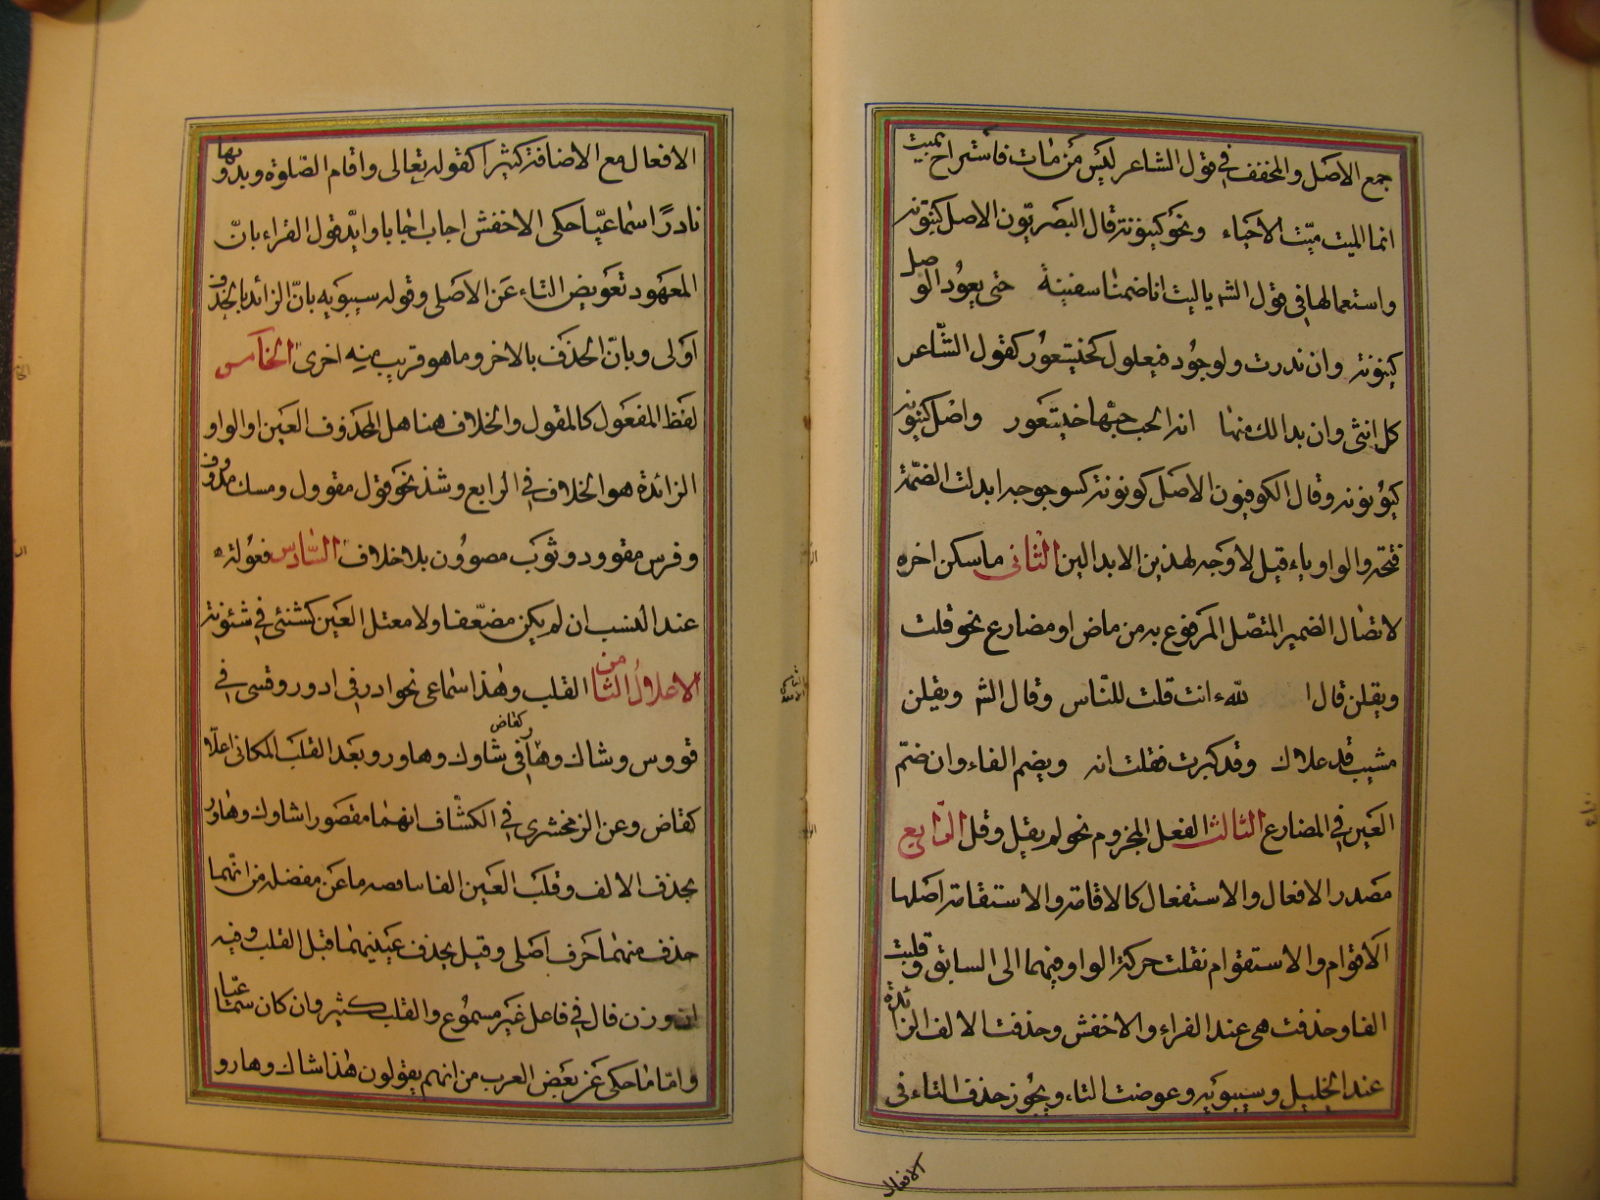 جمع الاصل والمخفف في قول الشاعر ليس من مات فاستراح بميت
انما الميت ميت الاحياء ونحو كينونة قال البصريون الاصل كينونة
واستعمالها في قول الش يا ليت انا ضمنا سفينة حتى يعود الوصل
كينونة وان ندرت ولوجود فيعلول كخيتعور كقول الشاعر
كل انثى وان بدا لك منها اية الحب حبها خيتعور واصل كينونة
كيونونة وقال الكوفيون الاصل كونونة كسوجوجه ابدلت الضمة
فتحة والواو ياء قيل لا وجه لهذين الابدالين الثاني ما سكن اخره
لاتصال الضمير المتصل المرفوع به من ماض او مضارع نحو قلت
ويقلن قال الله ءانت قلت للناس وقال الش ويقلن
مشيب قد علاك وقد كبرت فقلت انه ويضم الفاء وان ضم
العين في المضارع الثالث الفعل المجزوم نحو لم يقل وقل الرابع
مصدر الافعال والاستفعال كالاقامة والاستقامة اصلها
الاقوام والاستقوام نقلت حركة الواو فيهما الى السابق وقلبت
الفا وحذفت هي عند الفراء والاخفش وحذفت الالف الزائدة
عند الخليل وسيبويه وعوضت التاء ويجوز حذف التاء في
الافعال
الافعال مع الاضافة كثيرا كقوله تعالى واقام الصلوة وبدونها
نادرا سماعيا حكى الاخفش اجاب اجابا وايد قول الفراء بان
المعهود تعويض التاء عن الاصلي وقوله سيبويه بان الزائد بالحذف
اولى وبان الحذف بالاخر وما هو قريب منه احرى الخامس
لفظ المفعول كالمقول والخلاف هنا هل المحذوف العين او الواو
الزائدة هو الخلاف في الرابع وشذ نحو قول مقوول ومسك مدووف
وفرس مقوود وثوب مصوون بلا خلاف السادس فعولة
عند النسب ان لم يكن مضعفا ولا معتل العين كشنئي في شنوئة
الاعلال الثامن القلب وهذا سماعي نحو ادر في ادور وقسي في
قووس وشاك وهار في شاوك وهاور وبعد القلب المكاني اعلا
كقاض
كقاض وعن الزمخشري في الكشاف انهما مقصورا شاوك وهاور
بحذف الالف وقلب العين الفا وما عن مفضله من انهما
حذف منهما حرف اصلي وقيل بحذف عينيهما قبل القلب وفيه
ان وزن فال في فاعل غير مسموع والقلب كثير وان كان سماعيا
واما ما حكى عن بعض العرب من انهم يقولون هذا شاك وهار و